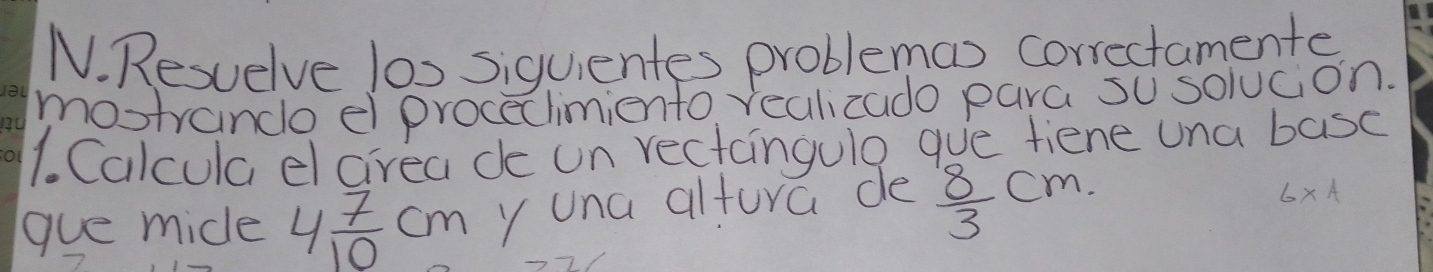 N. Resuelve los siguientes problemas correctamente
mostrando el procedimiento realizado para su solución.
1. Calcula el área de un rectángulo que tiene una base
que mide 4 7/10 cm y una altura de 8/3 cm.
b x A